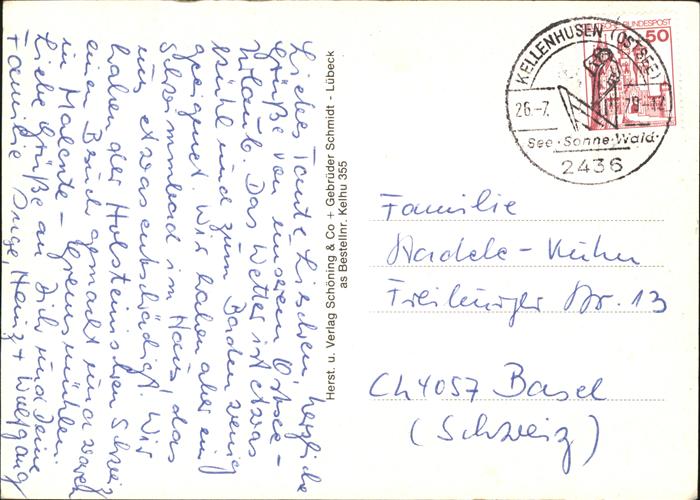 Liebes Tante Lieschen, herzliche
Grüße von unserem Ostsee-
Urlaub. Das Wetter ist etwas
kühl und zum Baden wenig
geeignet. Wir haben aber ein
Schwimmbad im Haus, das
uns etwas entschädigt. Wir
haben der Holsteinischen Schweiz
einen Besuch gemacht und waren
in Malente - Gremsmühlen.
Liebe Grüße an Dich und Deine
Familie Inge, Heinz + Wolfgang
Herst. u. Verlag Schöning & Co + Gebrüder Schmidt - Lübeck
as Bestellnr. Kelhu 355
DEUTSCHE BUNDESPOST
50
KELLENHUSEN (OSTSEE)
26.-7. 79-17
See·Sonne·Wald·
2436
Familie
-Kuhn
Freiburger Str. 13
CH 4057 Basel
(Schweiz)